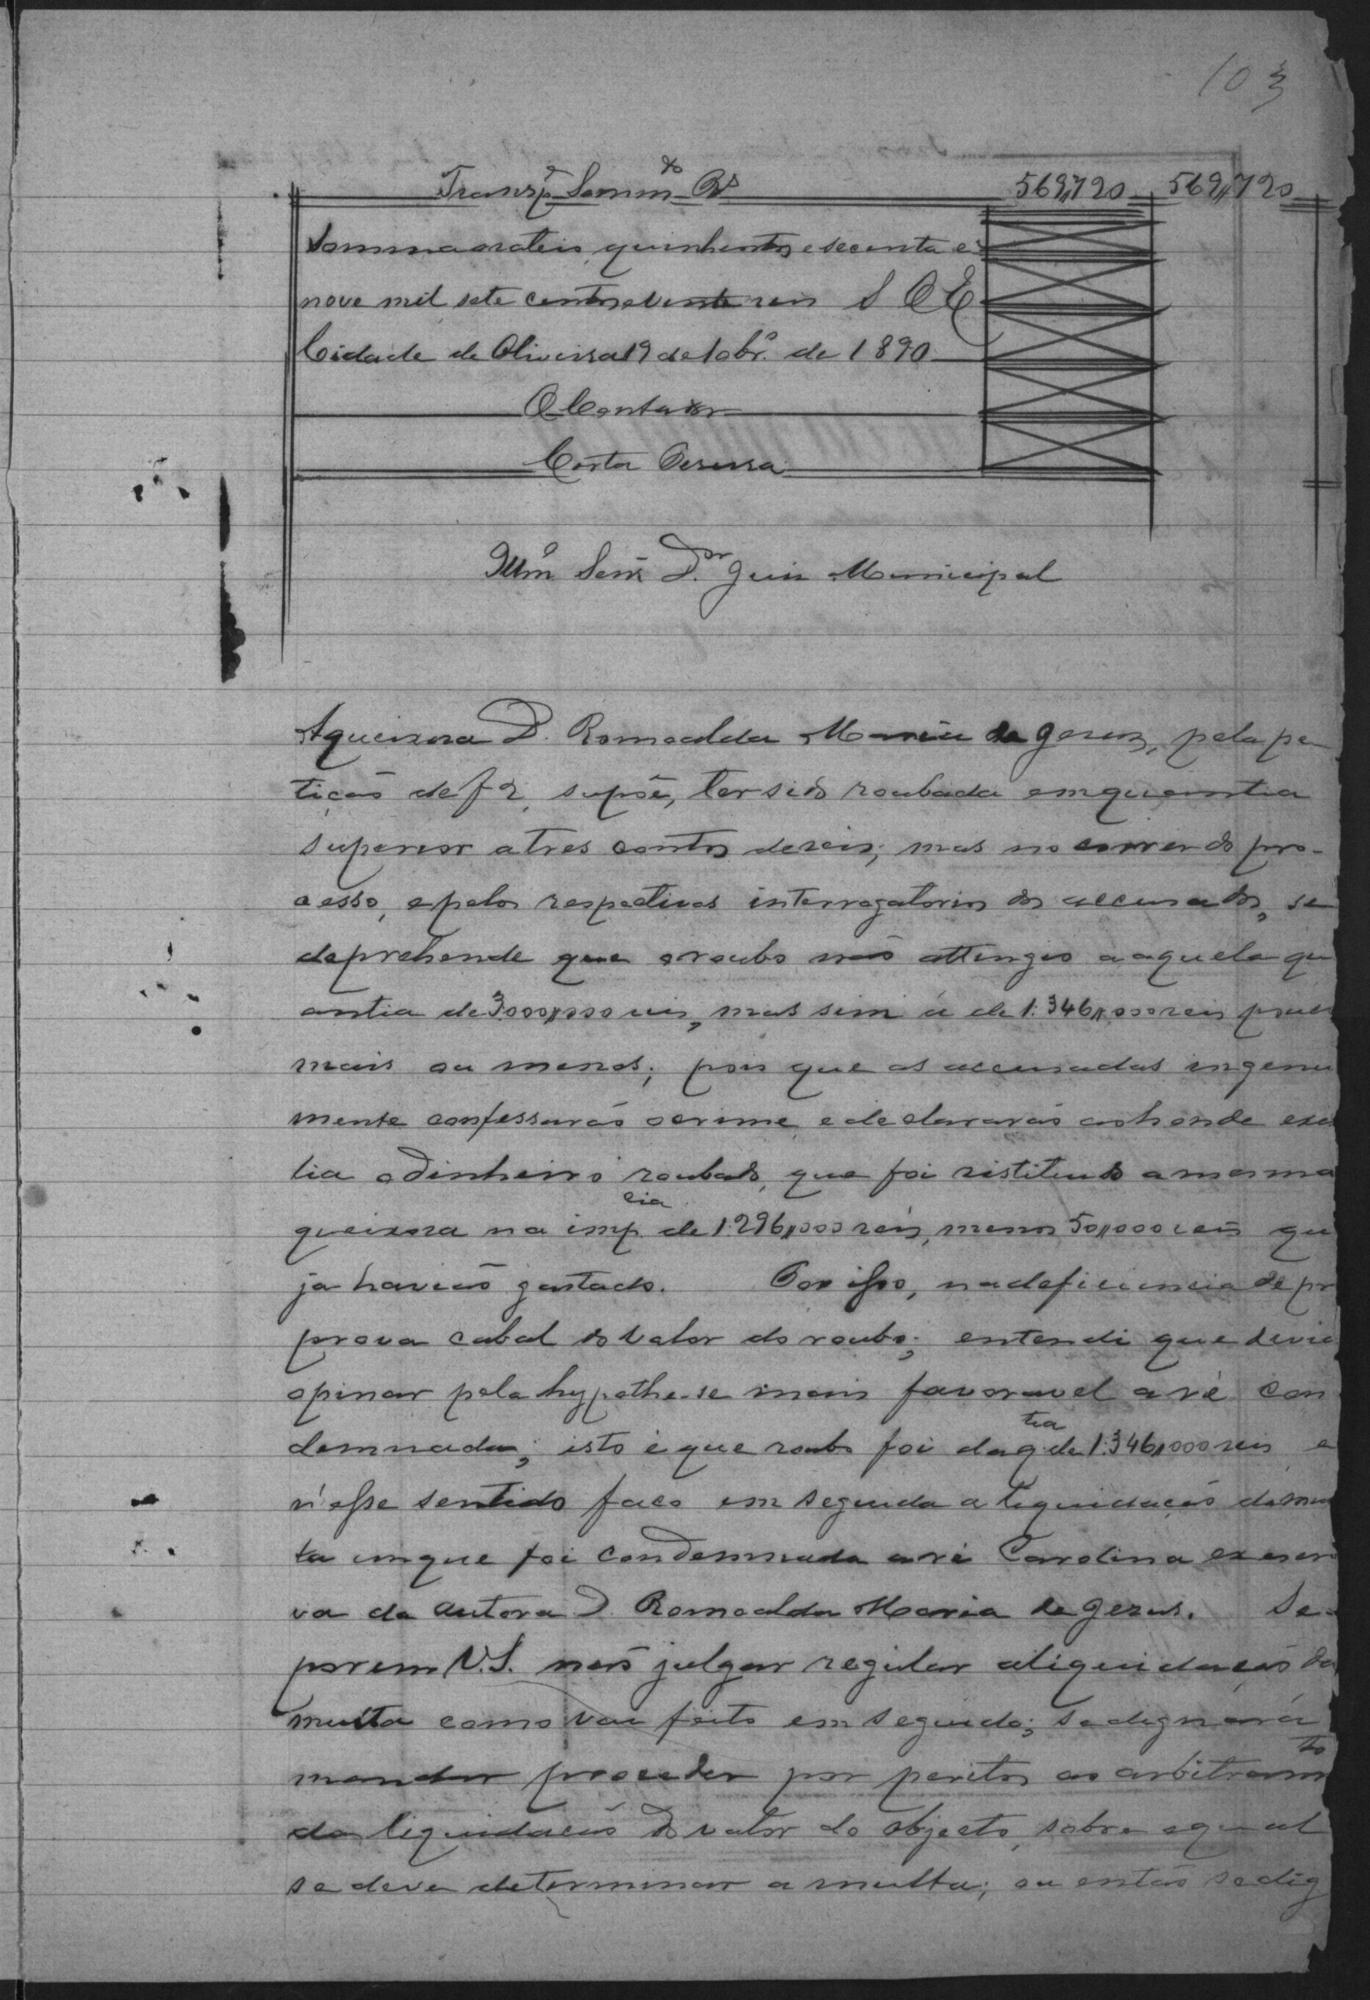 103
Transp.e Somm.do Rs 569,,720 569,,720
Somma o rateio quinhentos e secenta e
nove mil sete centos e vente reis S O E
Cidade de Oliveira 19 de 10br.o de 1890
O Contador
Costa Pereira
Illm.o Senr. D.or Juis Municipal
A queixosa D. Romoalda Maria de Gezus, pela pe
tição de f 2, supõe, ter sido roubada em quantia
superior a tres contos de reis; mas no correr do pro-
cesso, e pelos respectivos interrogatorios dos accusados, se
deprehende que o roubo não attengio a aquela qu
antia de 3.000,,000 reis, mas sim á de 1.346,,000 reis pouco
mais ou menos; pois que as accusadas ingenu
mente confessarão o crime e declararão aohonde exis
tia o dinheiro roubado, que foi ristituido a mesma
queixosa na imp.cia de 1.296,,000 reis, menos 50,,000 reis qu
ja havião gastado. Por isso, na deficiencia de pr
prova cabal do valor do roubo; entendi que devia
opinar pela hypothese mais favoravel a ré con
demnada; isto é que roubo foi da q.tia de 1.346,,000 reis e
n'esse sentido faço em seguida a liquidação da mul
ta em que foi condemnada a ré Carolina ex escra
va da autora D. Romoalda Maria de Gezus. Se
porem V.S. não julgar regular a liquidação da
multa como vai feito em seguida; se dignará
mandar proceder por peritos ao arbitram.to
da liquidação do valor do objecto, sobre o qual
se deve determinar a multa; ou então se dig